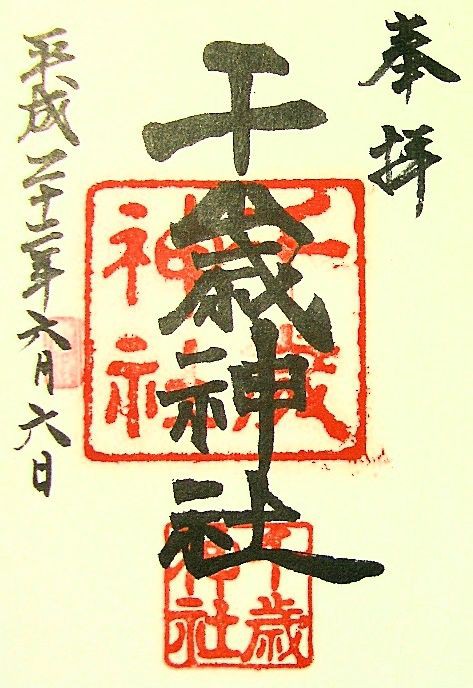 奉拝
千歳神社
平成二十二年六月六日
千歳
神社
千歳
神社